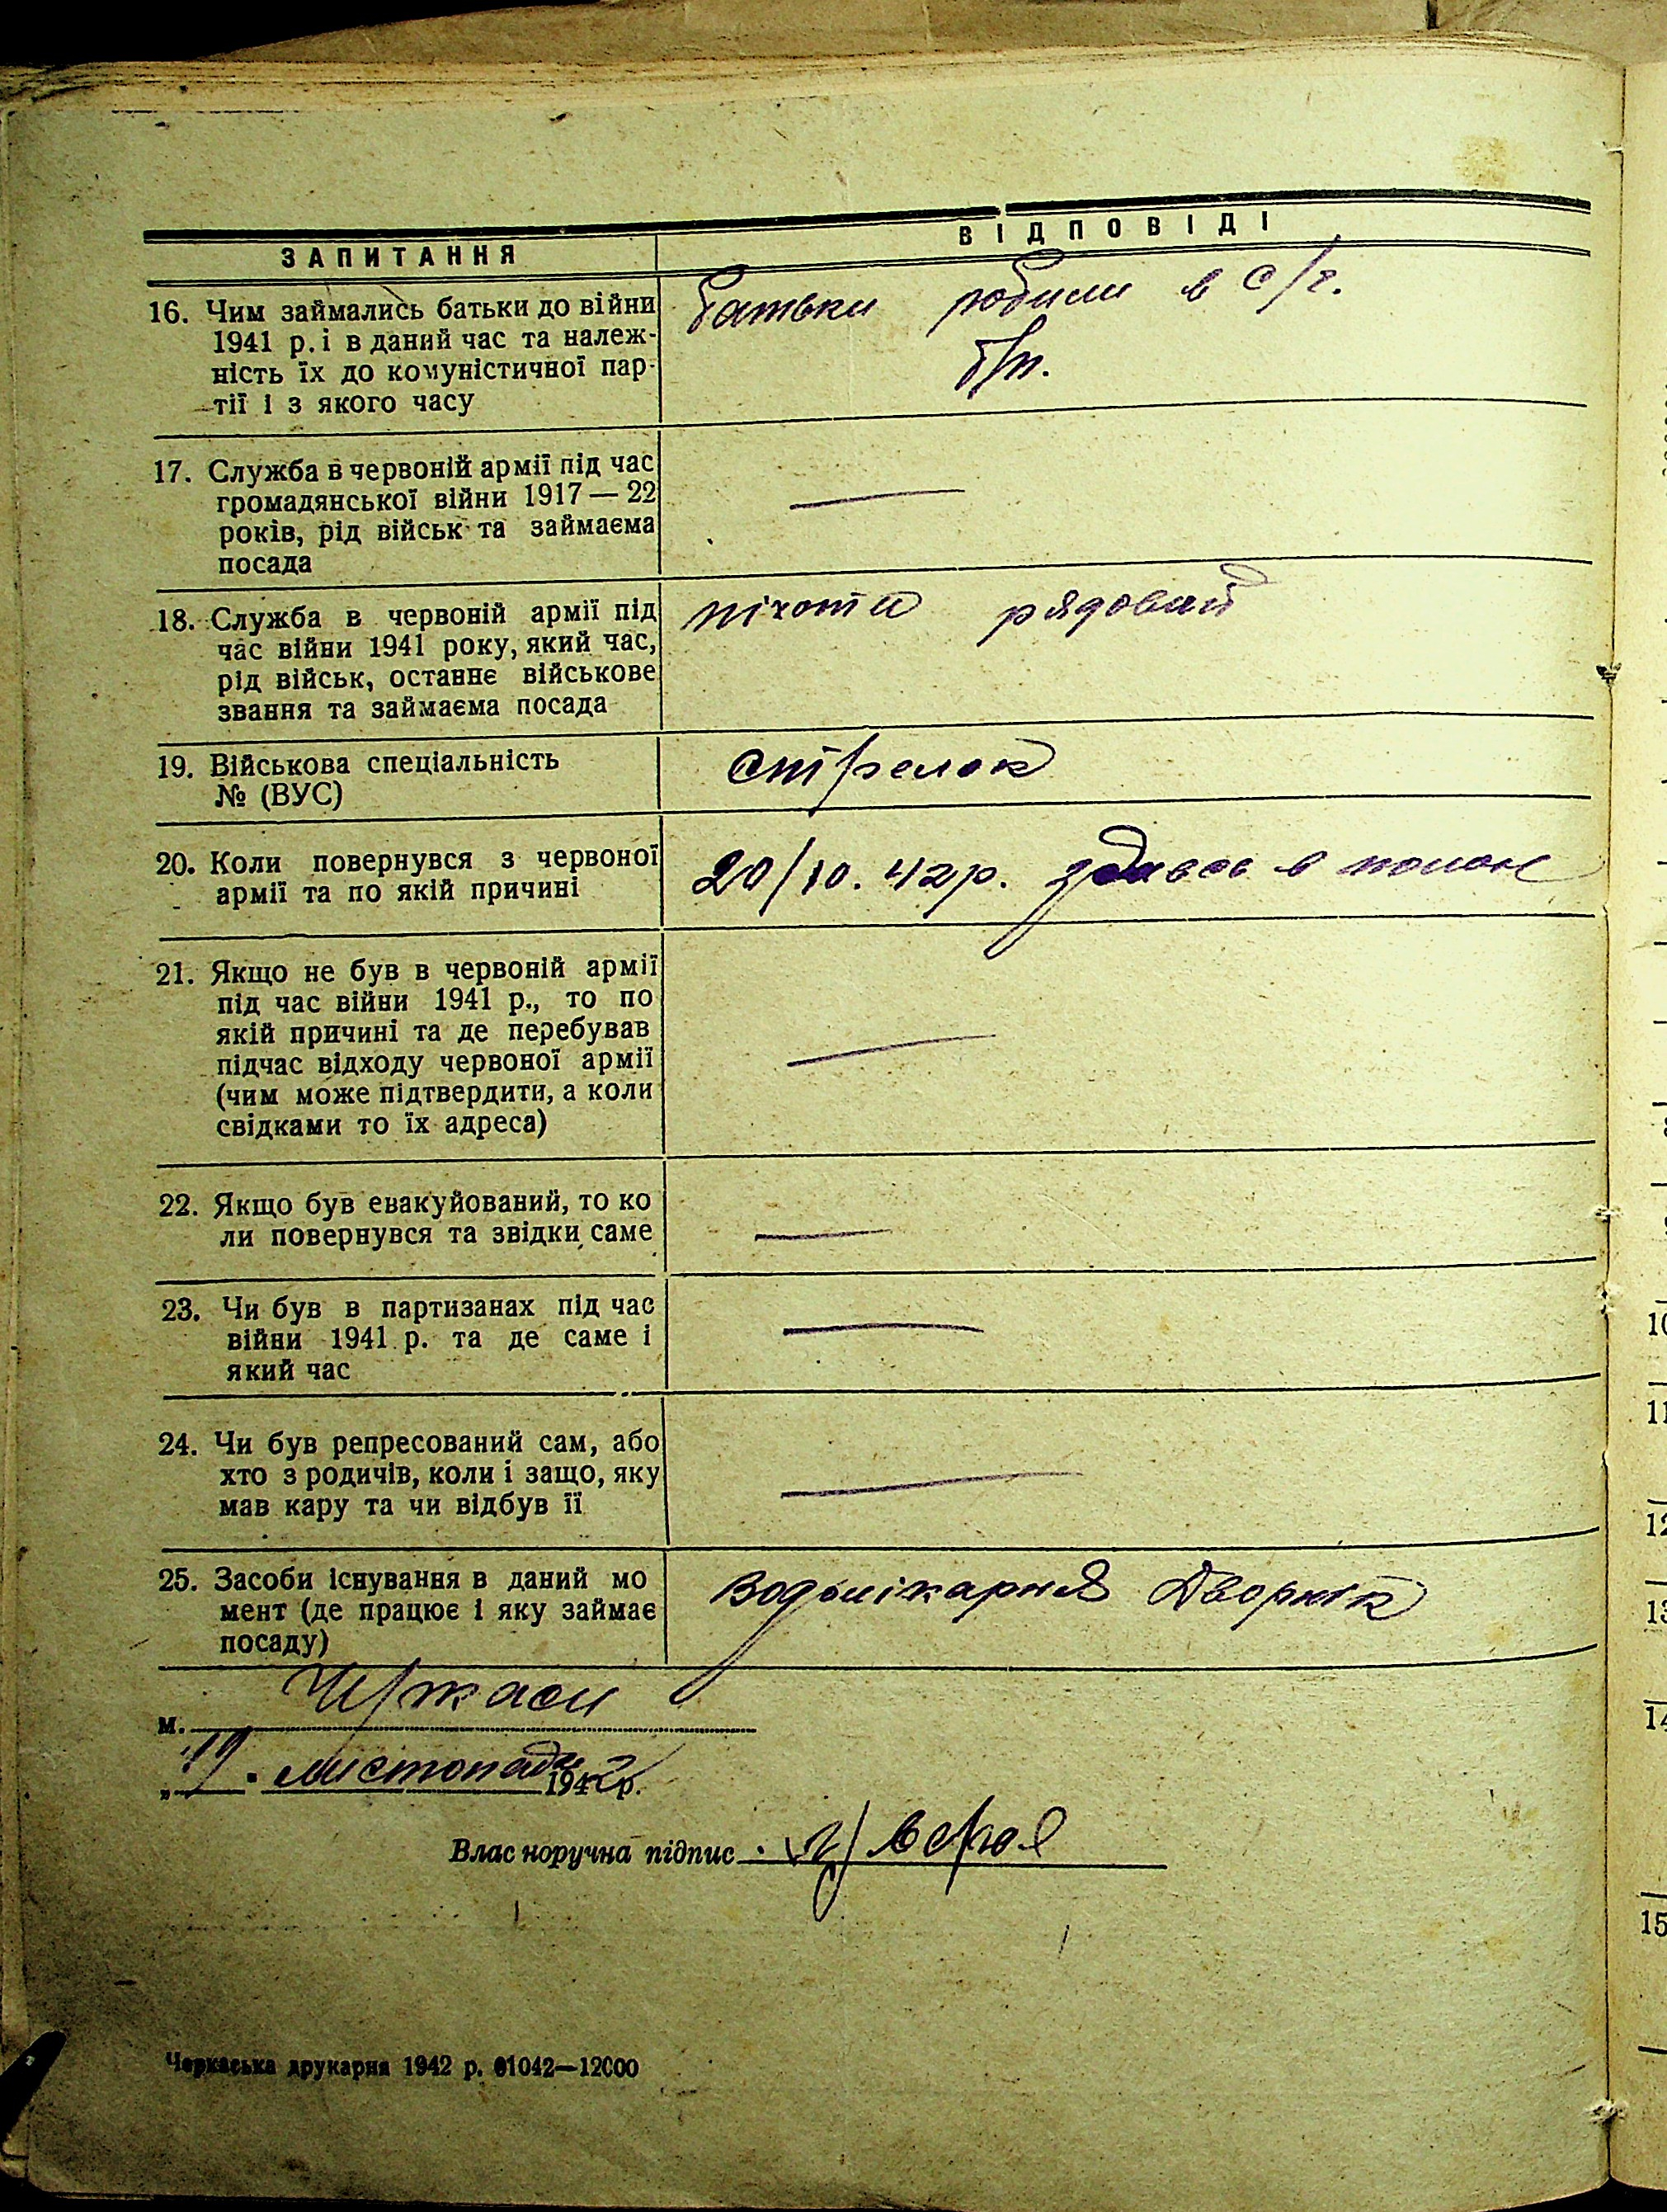 ЗАПИТАННЯ
ВІДПОВІДІ
16. Чим займались батьки до війни
1941 р. і в даний час та належ-
ність їх до комуністичної пар-
тії і з якого часу
батьки робили в с/г.
б/п.
17. Служба в червоній армії під час
громадянської війни 1917 — 22
років, рід військ та займаєма
посада
18. Служба в червоній армії під
час війни 1941 року, який час,
рід військ, останнє військове
звання та займаєма посада
піхота рядовий
19. Військова спеціальність
№ (ВУС)
стрелок
20. Коли повернувся з червоної
армії та по якій причині
20/10. 42 р. здавсь в полон
21. Якщо не був в червоній армії
під час війни 1941 р., то по
якій причині та де перебував
підчас відходу червоної армії
(чим може підтвердити, а коли
свідками то їх адреса)
22. Якщо був евакуйований, то ко
ли повернувся та звідки саме
23. Чи був в партизанах під час
війни 1941 р. та де саме і
який час
24. Чи був репресований сам, або
хто з родичів, коли і защо, яку
мав кару та чи відбув її
25. Засоби існування в даний мо
мент (де працює і яку займає
посаду)
Водолікарня Дворнік
м. Черкаси
листопада 1942 р.
Власноручна підпис
Черкаська друкарня 1942 р. 01042—12000
10
11
12
13
14
15